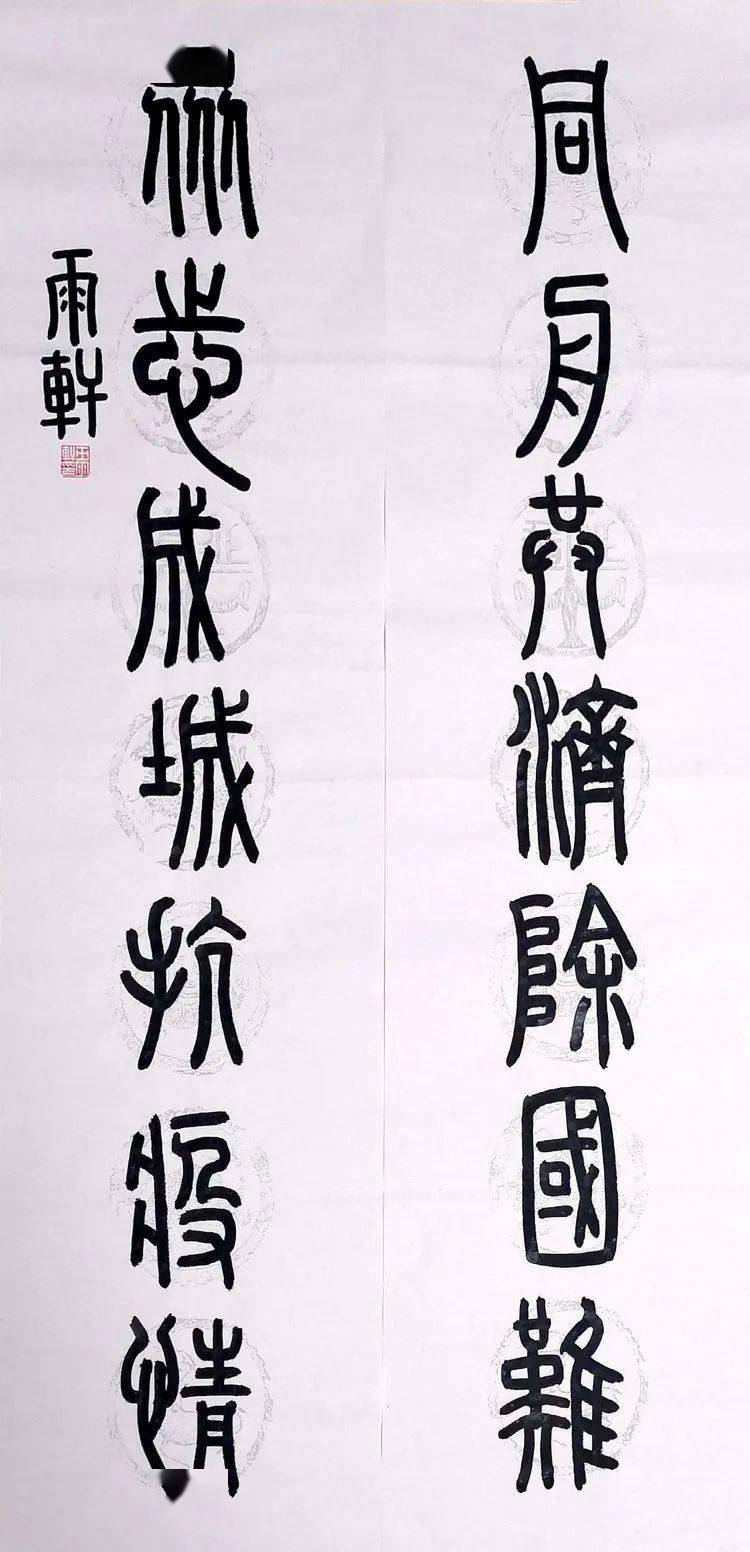 同舟共濟除國難
衆志成城抗疫情
雨軒